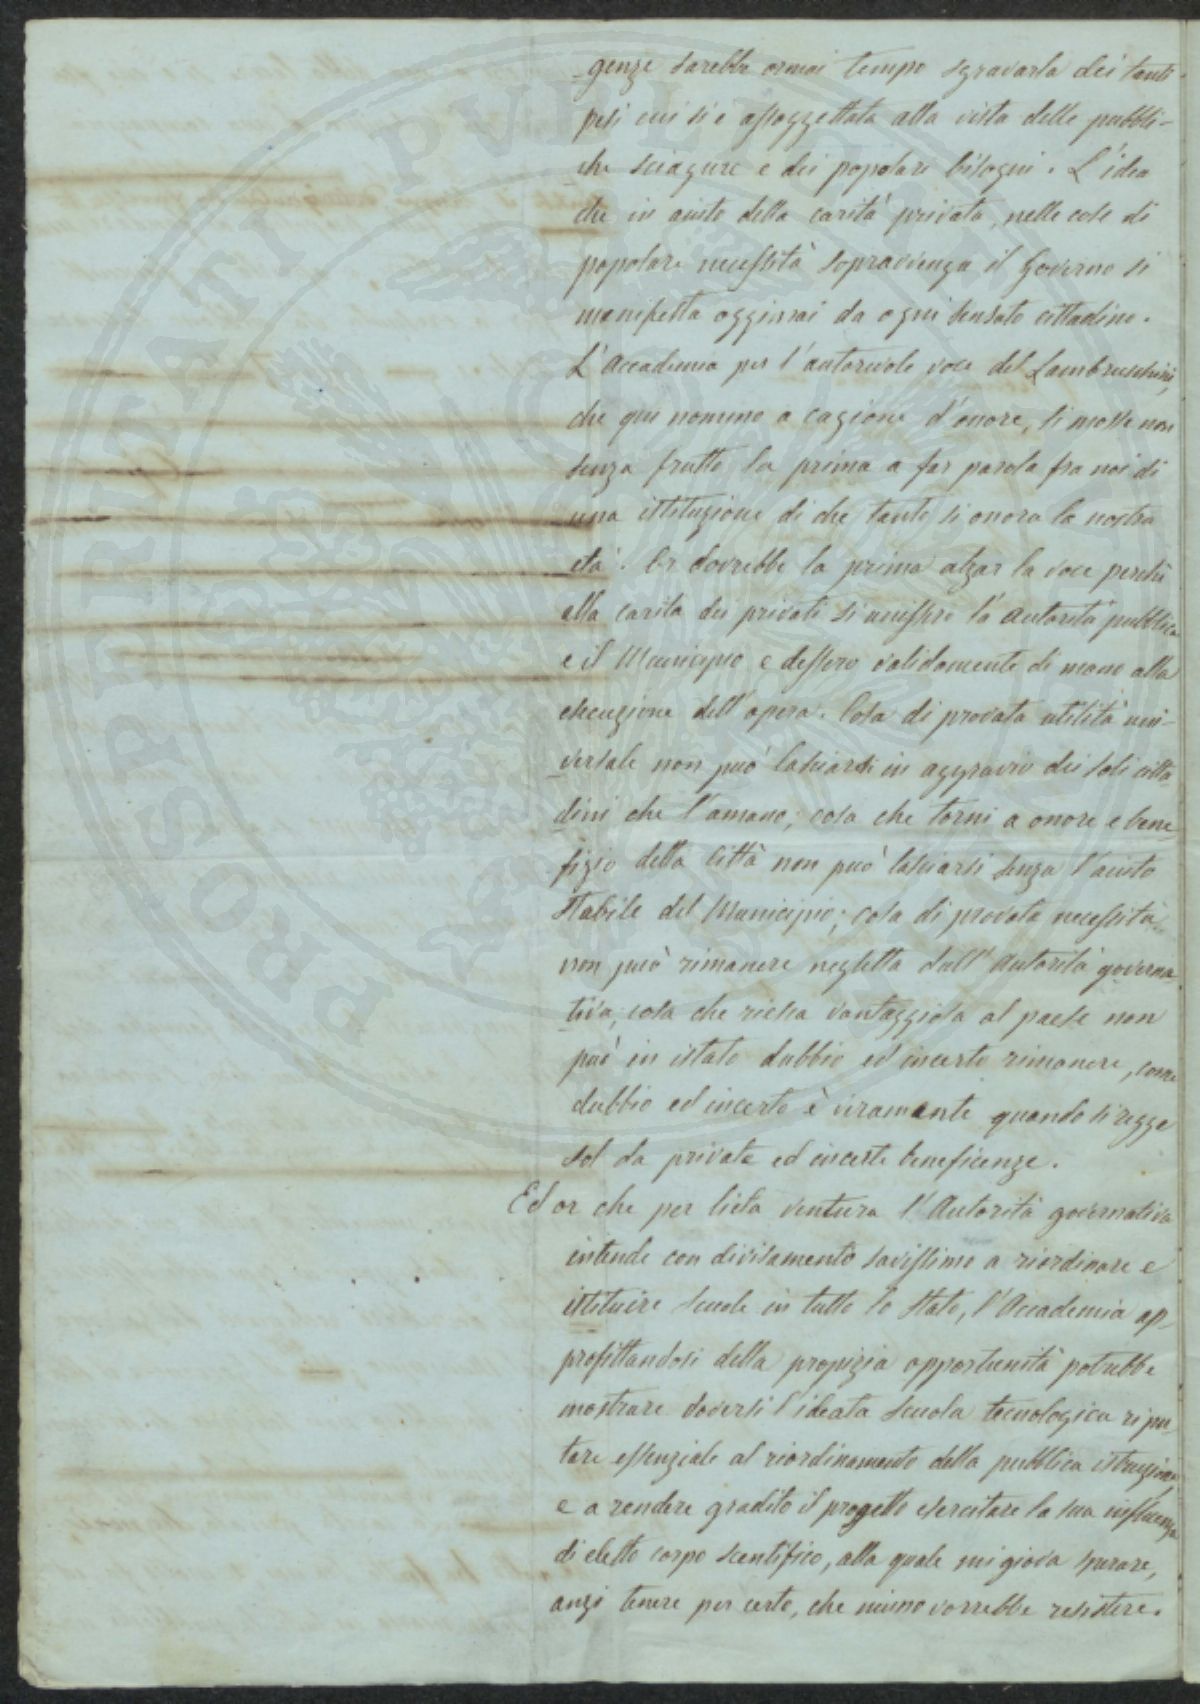 genze sarebbe ormai tempo sgravarla dei tanti
pesi cui si è assoggettata alla vista delle pubbli-
che sciagure e dei popolari bisogni. L'idea
che in aiuto della carità privata, nelle cose di
popolare necessità sopravvenga il Governo si
manifesta oggimai da ogni sensato cittadino.
L'Accademia per l'autorevole voce del Lambruschini,
che qui nomino a cagione d'onore, si mosse non
senza frutto la prima a far parola fra noi di
una istituzione di che tanto si onora la nostra
età. Or dovrebbe la prima alzar la voce perchè
alla carità dei privati si unissero l'Autorità pubblica
e il Municipio e dessero validamente di mano alla
esecuzione dell'opera. Cosa di provata utilità uni-
versale non può lasciarsi in aggravio dei soli citta-
dini che l'amano; cosa che torni a onore e bene-
fizio della Città non può lasciarsi senza l'aiuto
stabile del Municipio; cosa di provata necessità
non può rimanere negletta dall'Autorità governa-
tiva; cosa che riesca vantaggiosa al paese non
può in istato dubbio ed incerto rimanere, come
dubbio ed incerto è veramente quando si regge
sol da private ed incerte beneficenze.
Ed or che per lieta ventura l'Autorità governativa
intende con divisamento savissimo a riordinare e
istituire scuole in tutto lo Stato, l'Accademia ap-
profittandosi della propizia opportunità potrebbe
mostrare doversi l'ideata scuola tecnologica ripu-
tare essenziale al riordinamento della pubblica istruzione
e a rendere gradito il progetto esercitare la sua influenza
di eletto corpo scentifico, alla quale mi giova sperare,
anzi tenere per certo, che niuno vorrebbe resistere.
PROSPERITATI PVBLICAE